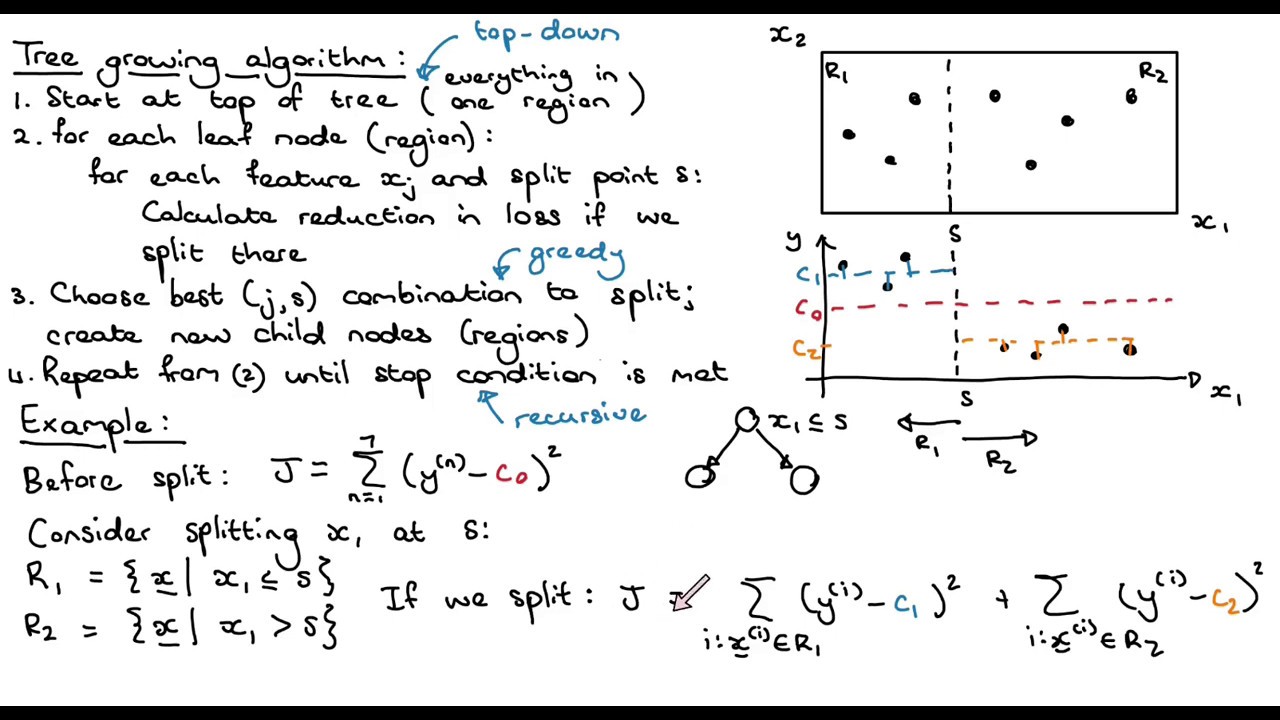 Tree growing algorithm:
top-down
1. Start at top of tree (everything in one region)
2. for each leaf node (region):
for each feature xⱼ and split point s:
Calculate reduction in loss if we
split there
greedy
3. Choose best (j,s) combination to split;
create new child nodes (regions)
4. Repeat from (2) until stop condition is met
recursive
Example:
Before split: J = Σ_{n=1}^{7} (y⁽ⁿ⁾ - c₀)²
Consider splitting x₁ at s:
R₁ = {x | x₁ ≤ s}
R₂ = {x | x₁ > s}
If we split: J = Σ_{i: x⁽ⁱ⁾ ∈ R₁} (y⁽ⁱ⁾ - c₁)² + Σ_{i: x⁽ⁱ⁾ ∈ R₂} (y⁽ⁱ⁾ - c₂)²
x₂
R₁ R₂
s
x₁
y
c₁
c₀
c₂
s
x₁
R₁
R₂
x₁ ≤ s